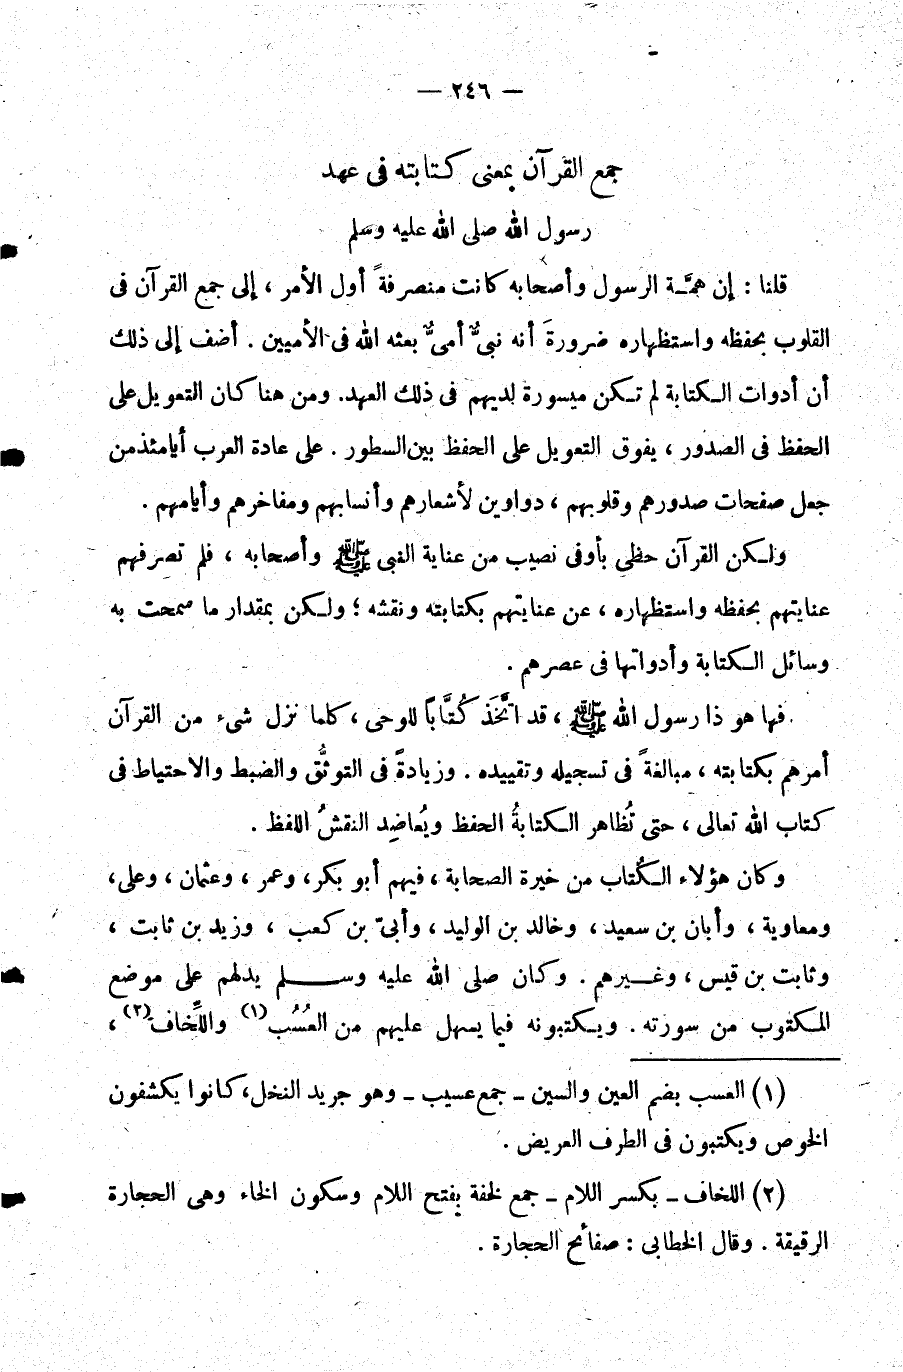 — ٢٤٦ —
جمع القرآن بمعنى كتابته فى عهد
رسول الله صلى الله عليه وسلم
قلنا : إن همَّة الرسول وأصحابه كانت منصرفةً أول الأمر ، إلى جمع القرآن فى
القلوب بحفظه واستظهاره ضرورةَ أنه نبىٌّ أمىٌّ بعثه الله فى الأميين . أضف إلى ذلك
أن أدوات الكتابة لم تكن ميسورة لديهم فى ذلك العهد. ومن هنا كان التعويل على
الحفظ فى الصدور ، يفوق التعويل على الحفظ بين السطور . على عادة العرب أيامئذ من
جعل صفحات صدورهم وقلوبهم ، دواوين لأشعارهم وأنسابهم ومفاخرهم وأيامهم .
ولكن القرآن حظى بأوفى نصيب من عناية النبى ﷺ وأصحابه ، فلم تصرفهم
عنايتهم بحفظه واستظهاره ، عن عنايتهم بكتابته ونقشه ؛ ولكن بمقدار ما سمحت به
وسائل الكتابة وأدواتها فى عصرهم .
فها هو ذا رسول الله ﷺ ، قد اتَّخَذ كُتَّاباً للوحى ، كلما نزل شىء من القرآن
أمرهم بكتابته ، مبالغةً فى تسجيله وتقييده . وزيادةً فى التوثُّق والضبط والاحتياط فى
كتاب الله تعالى ، حتى تُظاهر الكتابةُ الحفظ ويُعاضِد النقشُ اللفظ .
وكان هؤلاء الكُتاب من خيرة الصحابة ، فيهم أبو بكر، وعمر ، وعثمان ، وعلى،
ومعاوية ، وأبان بن سعيد ، وخالد بن الوليد ، وأبىّ بن كعب ، وزيد بن ثابت ،
وثابت بن قيس ، وغيرهم . وكان صلى الله عليه وسلم يدلهم على موضع
المكتوب من سورته . ويكتبونه فيما يسهل عليهم من العُسُب(١) واللِّخاف(٢) ،
(١) العسب بضم العين والسين - جمع عسيب - وهو جريد النخل، كانوا يكشفون
الخوص ويكتبون فى الطرف العريض .
(٢) اللخاف - بكسر اللام - جمع لخفة بفتح اللام وسكون الخاء وهى الحجارة
الرقيقة . وقال الخطابى : صفائح الحجارة .